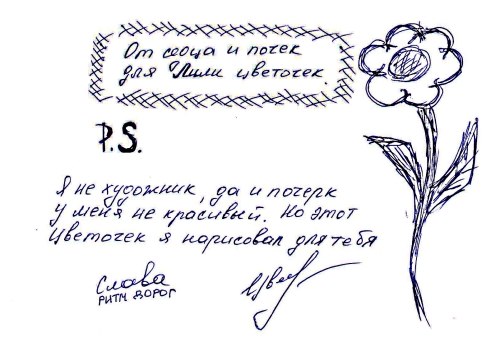 От сеоца и почек
для Лили цветочек.
P.S.
Я не художник, да и почерк
у меня не красивый. Но этот
цветочек я нарисовал для тебя
Слава
РИТМ ДОРОГ